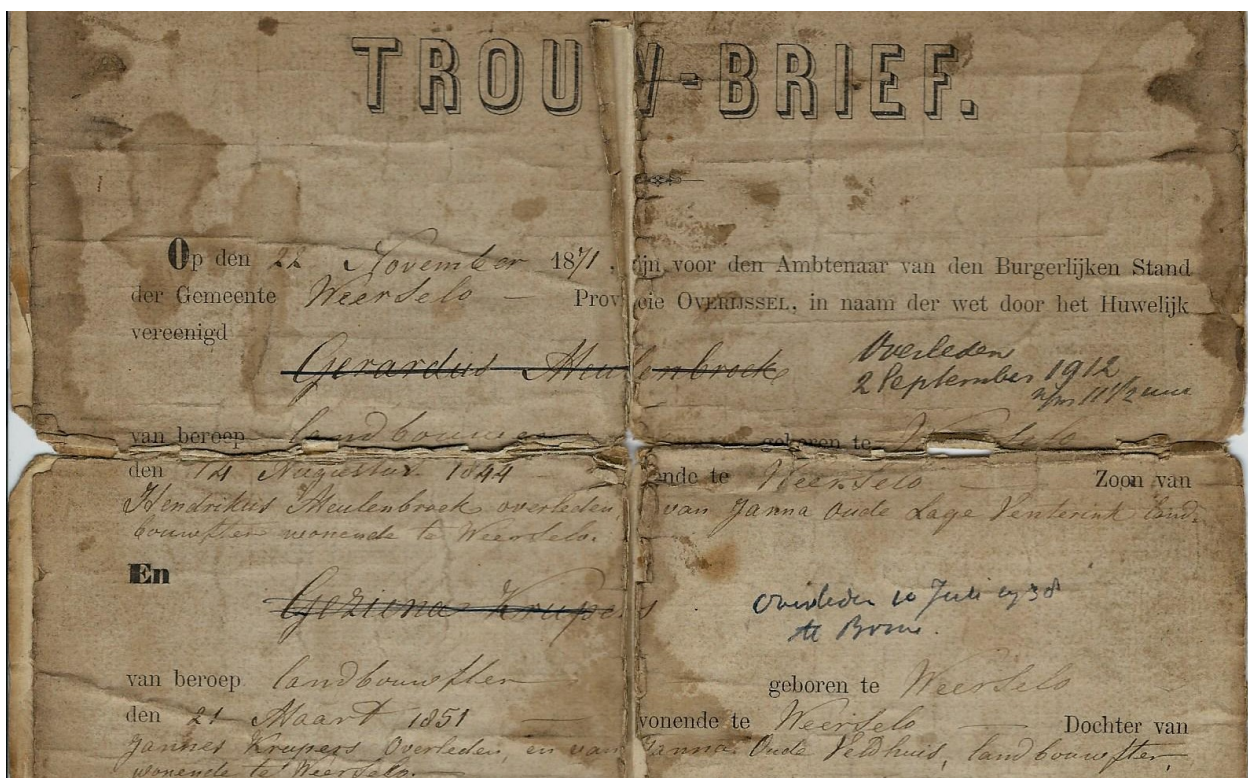 TROUW-BRIEF.
Op den 22 November 1871, zijn voor den Ambtenaar van den Burgerlijken Stand
der Gemeente Weerselo – Provincie OVERIJSSEL, in naam der wet door het Huwelijk
vereenigd
Gerardus Meulenbroek
Overleden
2 September 1912
n/m 11 1/2 uur
van beroep landbouwer geboren te Weerselo
den 14 Augustus 1844 – wonende te Weerselo – Zoon van
Hendrikus Meulenbroek overleden van Janna Oude Lage Venterink land-
bouwster wonende te Weerselo.
En
Geziena Krupers
Overleden 10 Juli 1938
te Borne.
van beroep landbouwster geboren te Weerselo
den 21 Maart 1851 – wonende te Weerselo – Dochter van
Jannes Krupers Overleden, en van Janna Oude Veldhuis, landbouwster,
wonende te Weerselo.